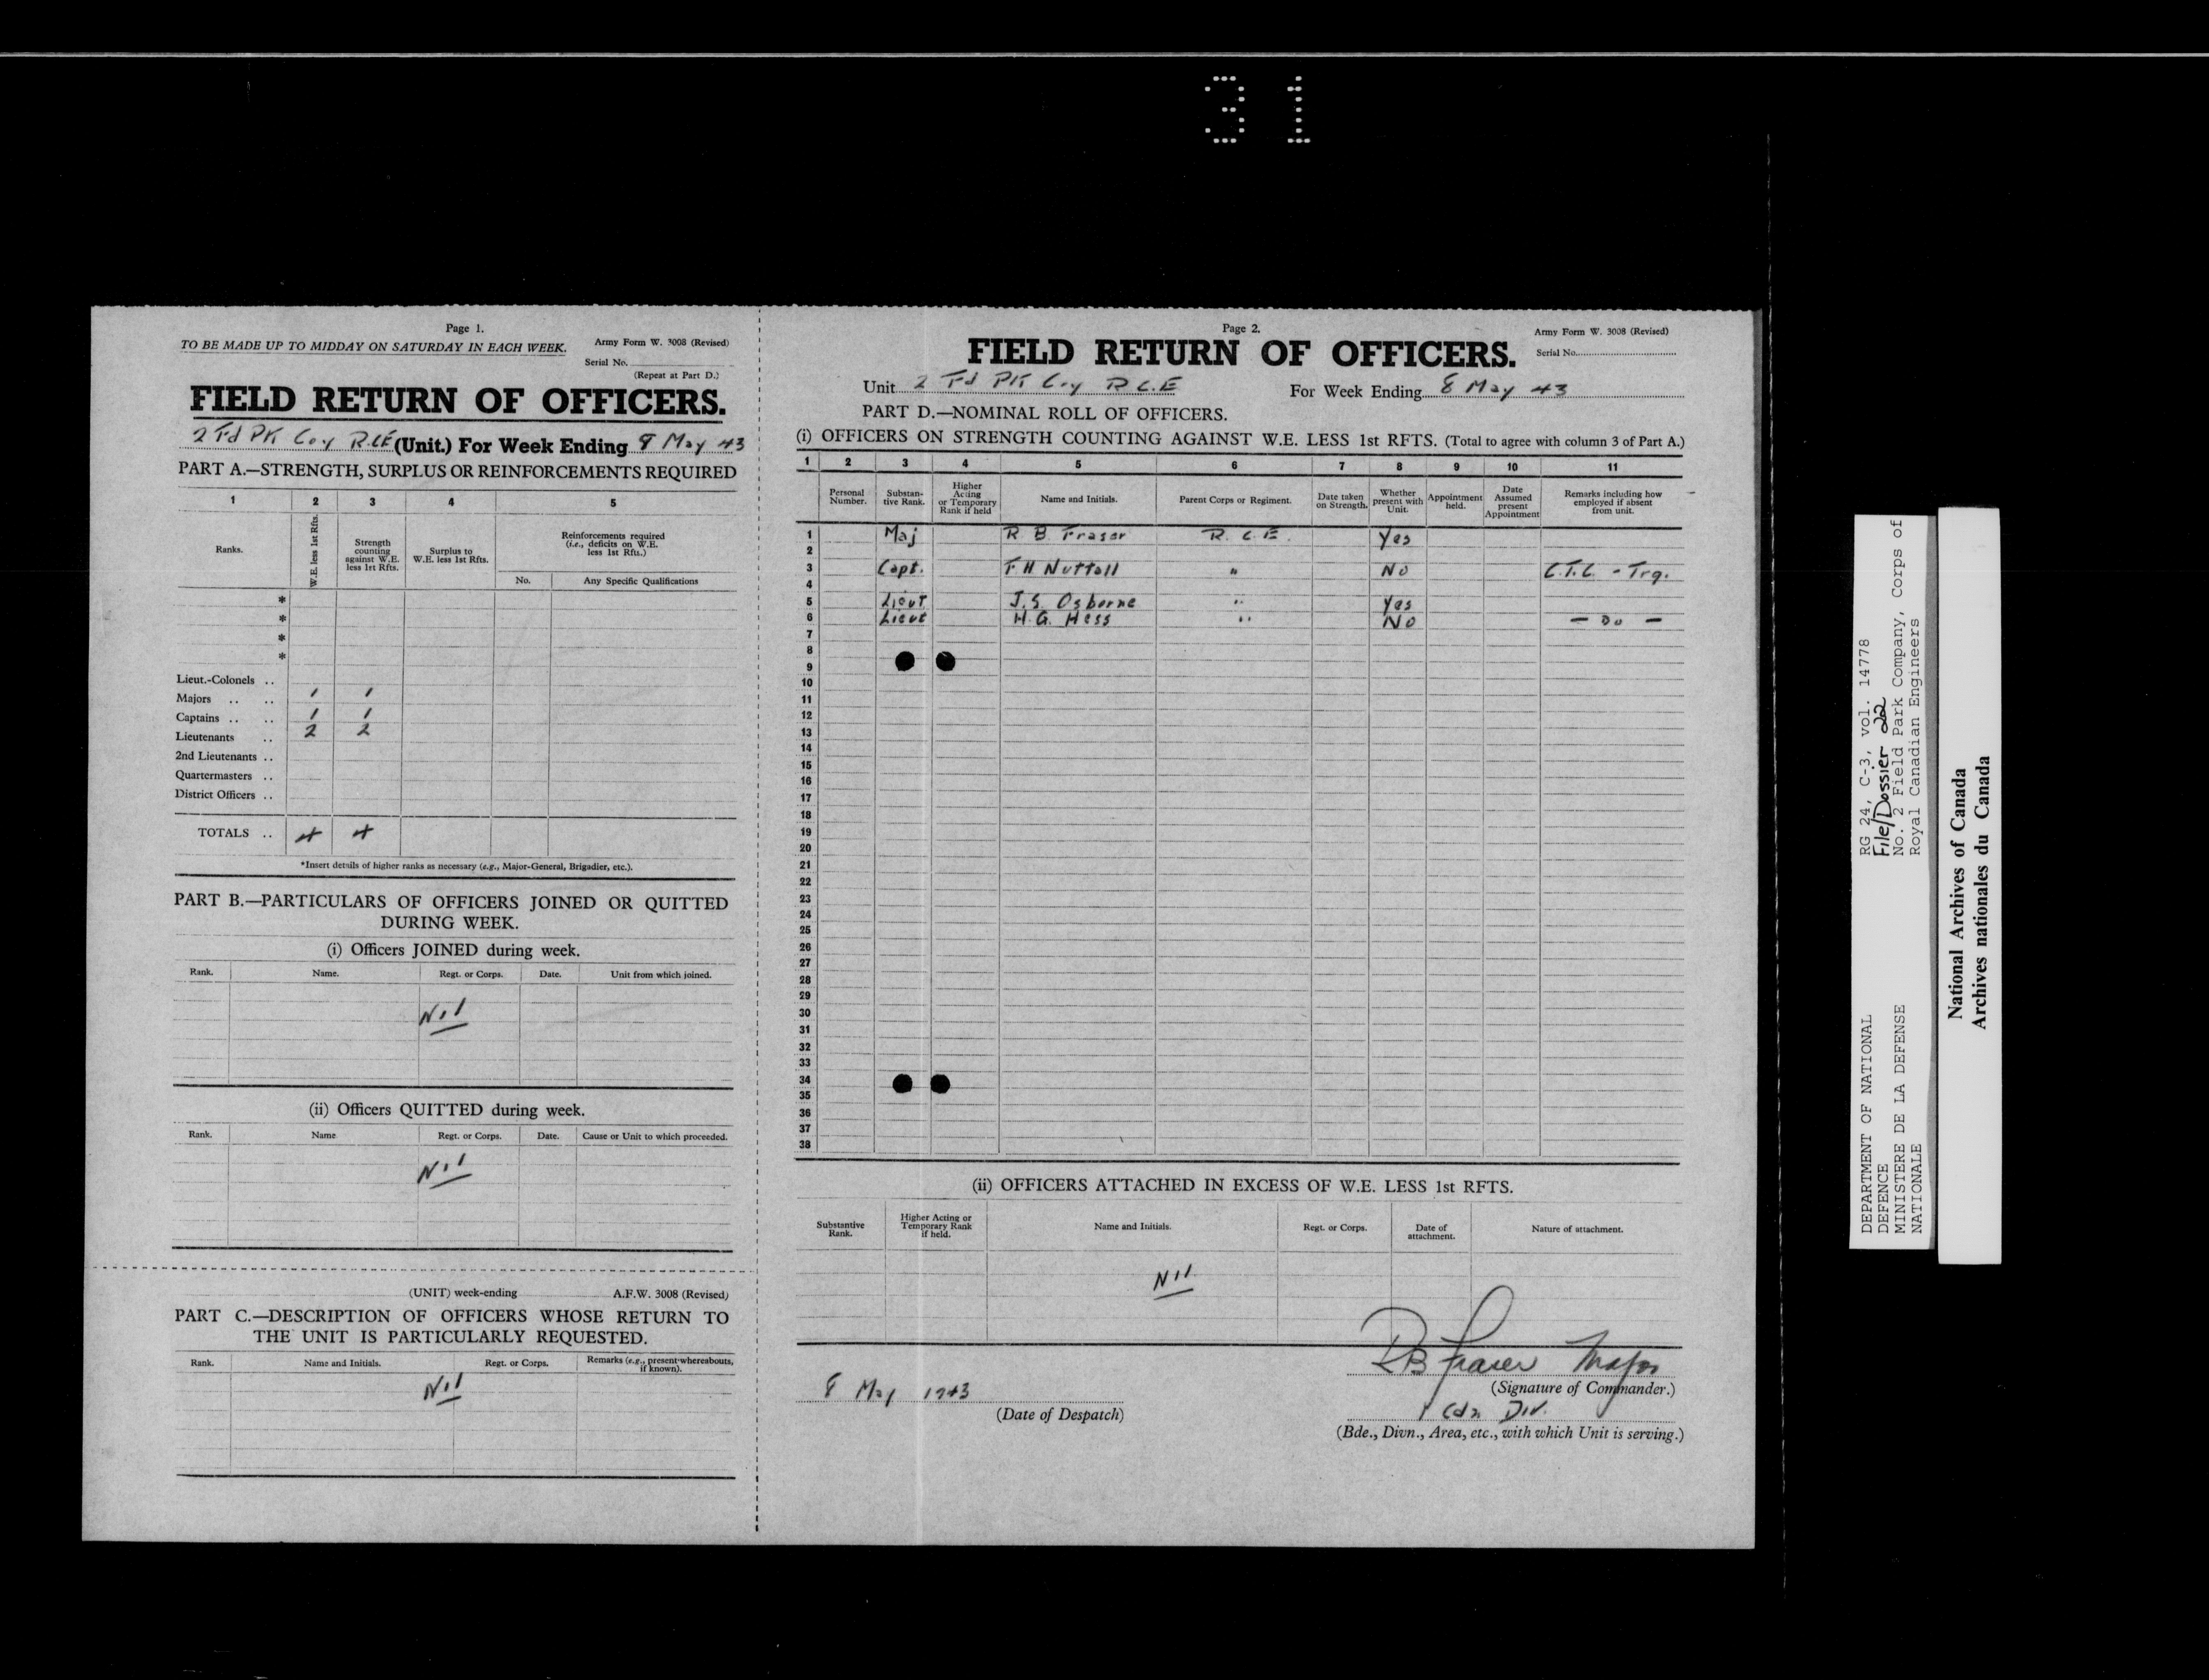 31
Page 1.
TO BE MADE UP TO MIDDAY ON SATURDAY IN EACH WEEK.
Army Form W. 3008 (Revised)
Serial No.
(Repeat at Part D.)
FIELD RETURN OF OFFICERS.
2 Fd PK Coy RCE (Unit.) For Week Ending 8 May 43
PART A.—STRENGTH, SURPLUS OR REINFORCEMENTS REQUIRED
1 2 3 4 5
Ranks. W.E. less 1st Rfts. Strength counting against W.E. less 1rt Rfts. Surplus to W.E. less 1st Rfts. Reinforcements required (i.e., deficits on W.E. less 1st Rfts.)
No. Any Specific Qualifications
*
*
*
*
Lieut.-Colonels ..
Majors .. .. 1 1
Captains .. .. 1 1
Lieutenants .. 2 2
2nd Lieutenants ..
Quartermasters ..
District Officers ..
TOTALS .. 4 4
*Insert details of higher ranks as necessary (e.g., Major-General, Brigadier, etc.).
PART B.—PARTICULARS OF OFFICERS JOINED OR QUITTED
DURING WEEK.
(i) Officers JOINED during week.
Rank. Name. Regt. or Corps. Date. Unit from which joined.
Nil
(ii) Officers QUITTED during week.
Rank. Name Regt. or Corps. Date. Cause or Unit to which proceeded.
Nil
(UNIT) week-ending A.F.W. 3008 (Revised)
PART C.—DESCRIPTION OF OFFICERS WHOSE RETURN TO
THE UNIT IS PARTICULARLY REQUESTED.
Rank. Name and Initials. Regt. or Corps. Remarks (e.g., present whereabouts, if known).
Nil
Page 2.
Army Form W. 3008 (Revised)
FIELD RETURN OF OFFICERS.
Serial No.
Unit 2 Fd PK Coy RCE For Week Ending 8 May 43
PART D.—NOMINAL ROLL OF OFFICERS.
(i) OFFICERS ON STRENGTH COUNTING AGAINST W.E. LESS 1st RFTS. (Total to agree with column 3 of Part A.)
1 2 3 4 5 6 7 8 9 10 11
Personal Number. Substan-tive Rank. Higher Acting or Temporary Rank if held Name and Initials. Parent Corps or Regiment. Date taken on Strength. Whether present with Unit. Appointment held. Date Assumed present Appointment Remarks including how employed if absent from unit.
1 Maj R B Fraser R.C.E. Yes
2
3 Capt. F H Nuttall " No C.T.C. - Trg.
4
5 Lieut J.S. Osborne " Yes
6 Lieut H.G. Hess " No — Do —
7
8
9
10
11
12
13
14
15
16
17
18
19
20
21
22
23
24
25
26
27
28
29
30
31
32
33
34
35
36
37
38
(ii) OFFICERS ATTACHED IN EXCESS OF W.E. LESS 1st RFTS.
Substantive Rank. Higher Acting or Temporary Rank if held. Name and Initials. Regt. or Corps. Date of attachment. Nature of attachment.
Nil
RB Fraser Major
(Signature of Commander.)
8 May 1943
(Date of Despatch)
1 Cdn Div.
(Bde., Divn., Area, etc., with which Unit is serving.)
DEPARTMENT OF NATIONAL
DEFENCE
MINISTERE DE LA DEFENSE
NATIONALE
RG 24, C-3, vol. 14778
File/Dossier 22
No. 2 Field Park Company, Corps of
Royal Canadian Engineers
National Archives of Canada
Archives nationales du Canada